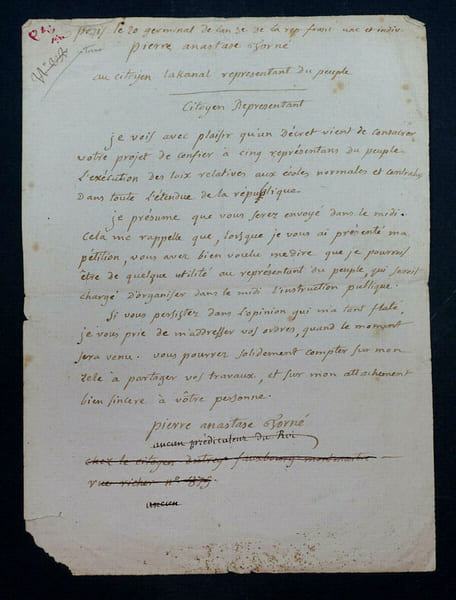 paris le 20 germinal de l'an 3e de la rép franc une et indiv.
pierre anastase Torné
au citoyen lakanal représentant du peuple
Citoyen Représentant
je vois avec plaisir qu'un décret vient de consacrer
votre projet de confier à cinq représentans du peuple
l'exécution des loix relatives aux écoles normales et centrales
dans toute l'étendue de la république.
je présume que vous serez envoyé dans le midi.
Cela me rappelle que, lorsque je vous ai présenté ma
pétition, vous avez bien voulu me dire que je pourrois
être de quelque utilité au représentant du peuple, qui seroit
chargé d'organiser dans le midi l'instruction publique.
Si vous persistez dans l'opinion qui m'a tant flaté,
je vous prie de m'addresser vos ordres, quand le moment
sera venu. vous pourrez solidement compter sur mon
zele à partager vos travaux, et sur mon attachement
bien sincère à vôtre personne.
pierre anastase Torné
ancien prédicateur du Roi
chez le citoyen fauxbourg montmartre
rue richer n°
ancien